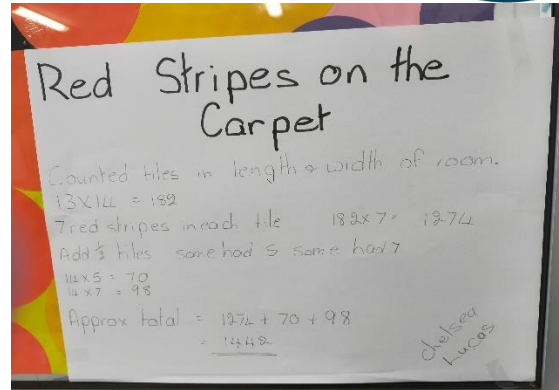 Red Stripes on the
Carpet
Counted tiles in length & width of room.
13 x 14 = 182
7 red stripes in each tile 182 x 7 = 1274
Add ½ tiles some had 5 some had 7
14 x 5 = 70
14 x 7 = 98
Approx total = 1274 + 70 + 98
= 1442
Chelsea
Lucas